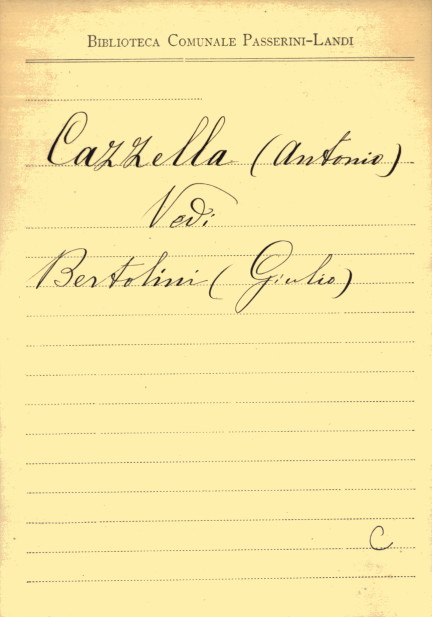 Biblioteca Comunale Passerini-Landi
Cazzella (Antonio)
Vedi
Bertolini (Giulio)
C